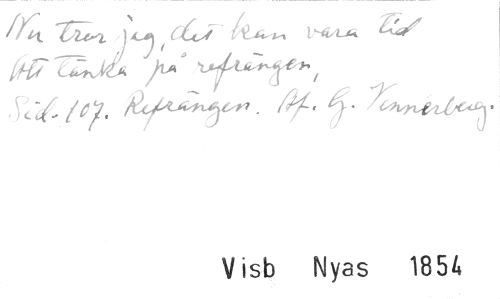 Nu tror jag, det kan vara tid
Att tänka på refrängen,
Sid. 107. Refrängen. Af. G. Vennerberg.
Visb Nyas 1854